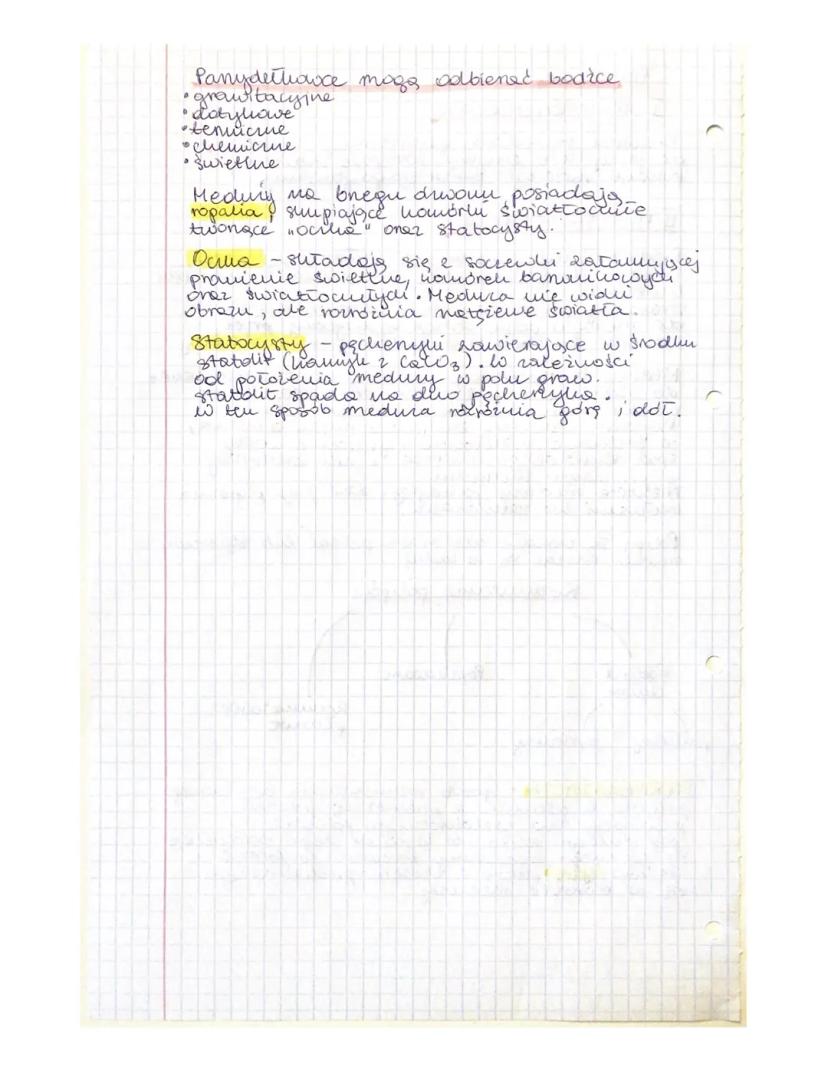 Parzydełkowce mogą odbierać bodźce
• grawitacyjne
• dotykowe
• termiczne
• chemiczne
• świetlne
Meduzy na brzegu dzwonu posiadają
ropalia, skupiające komórki światłoczułe
tworzące „oczka" oraz statocysty.
Oczka - składają się z soczewki załamującej
promienie świetlne, komórek barwnikowych
oraz światłoczułych. Meduza nie widzi
obrazu, ale rozróżnia natężenie światła.
Statocysty - pęcherzyki zawierające w środku
statolit (kamyk z CaCO3). W zależności
od położenia meduzy w polu graw.
statolit spada na dno pęcherzyka.
W ten sposób meduza rozróżnia górę i dół.